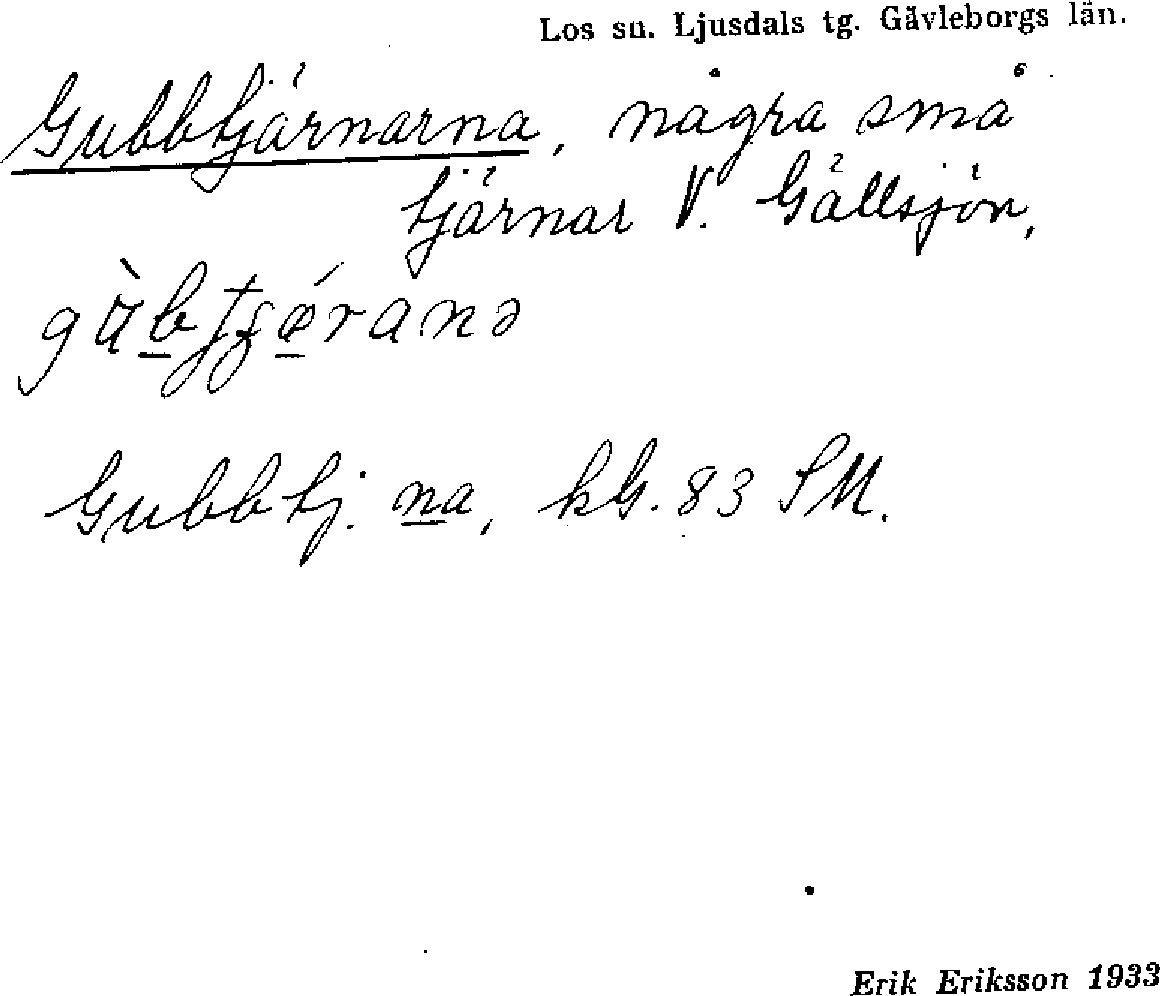 Los sn. Ljusdals tg. Gävleborgs län.
Gubbtjärnarna, några små
tjärnar V. Gällsjön,
Gubbtj. na, kG. 83 SM.
Erik Eriksson 1933